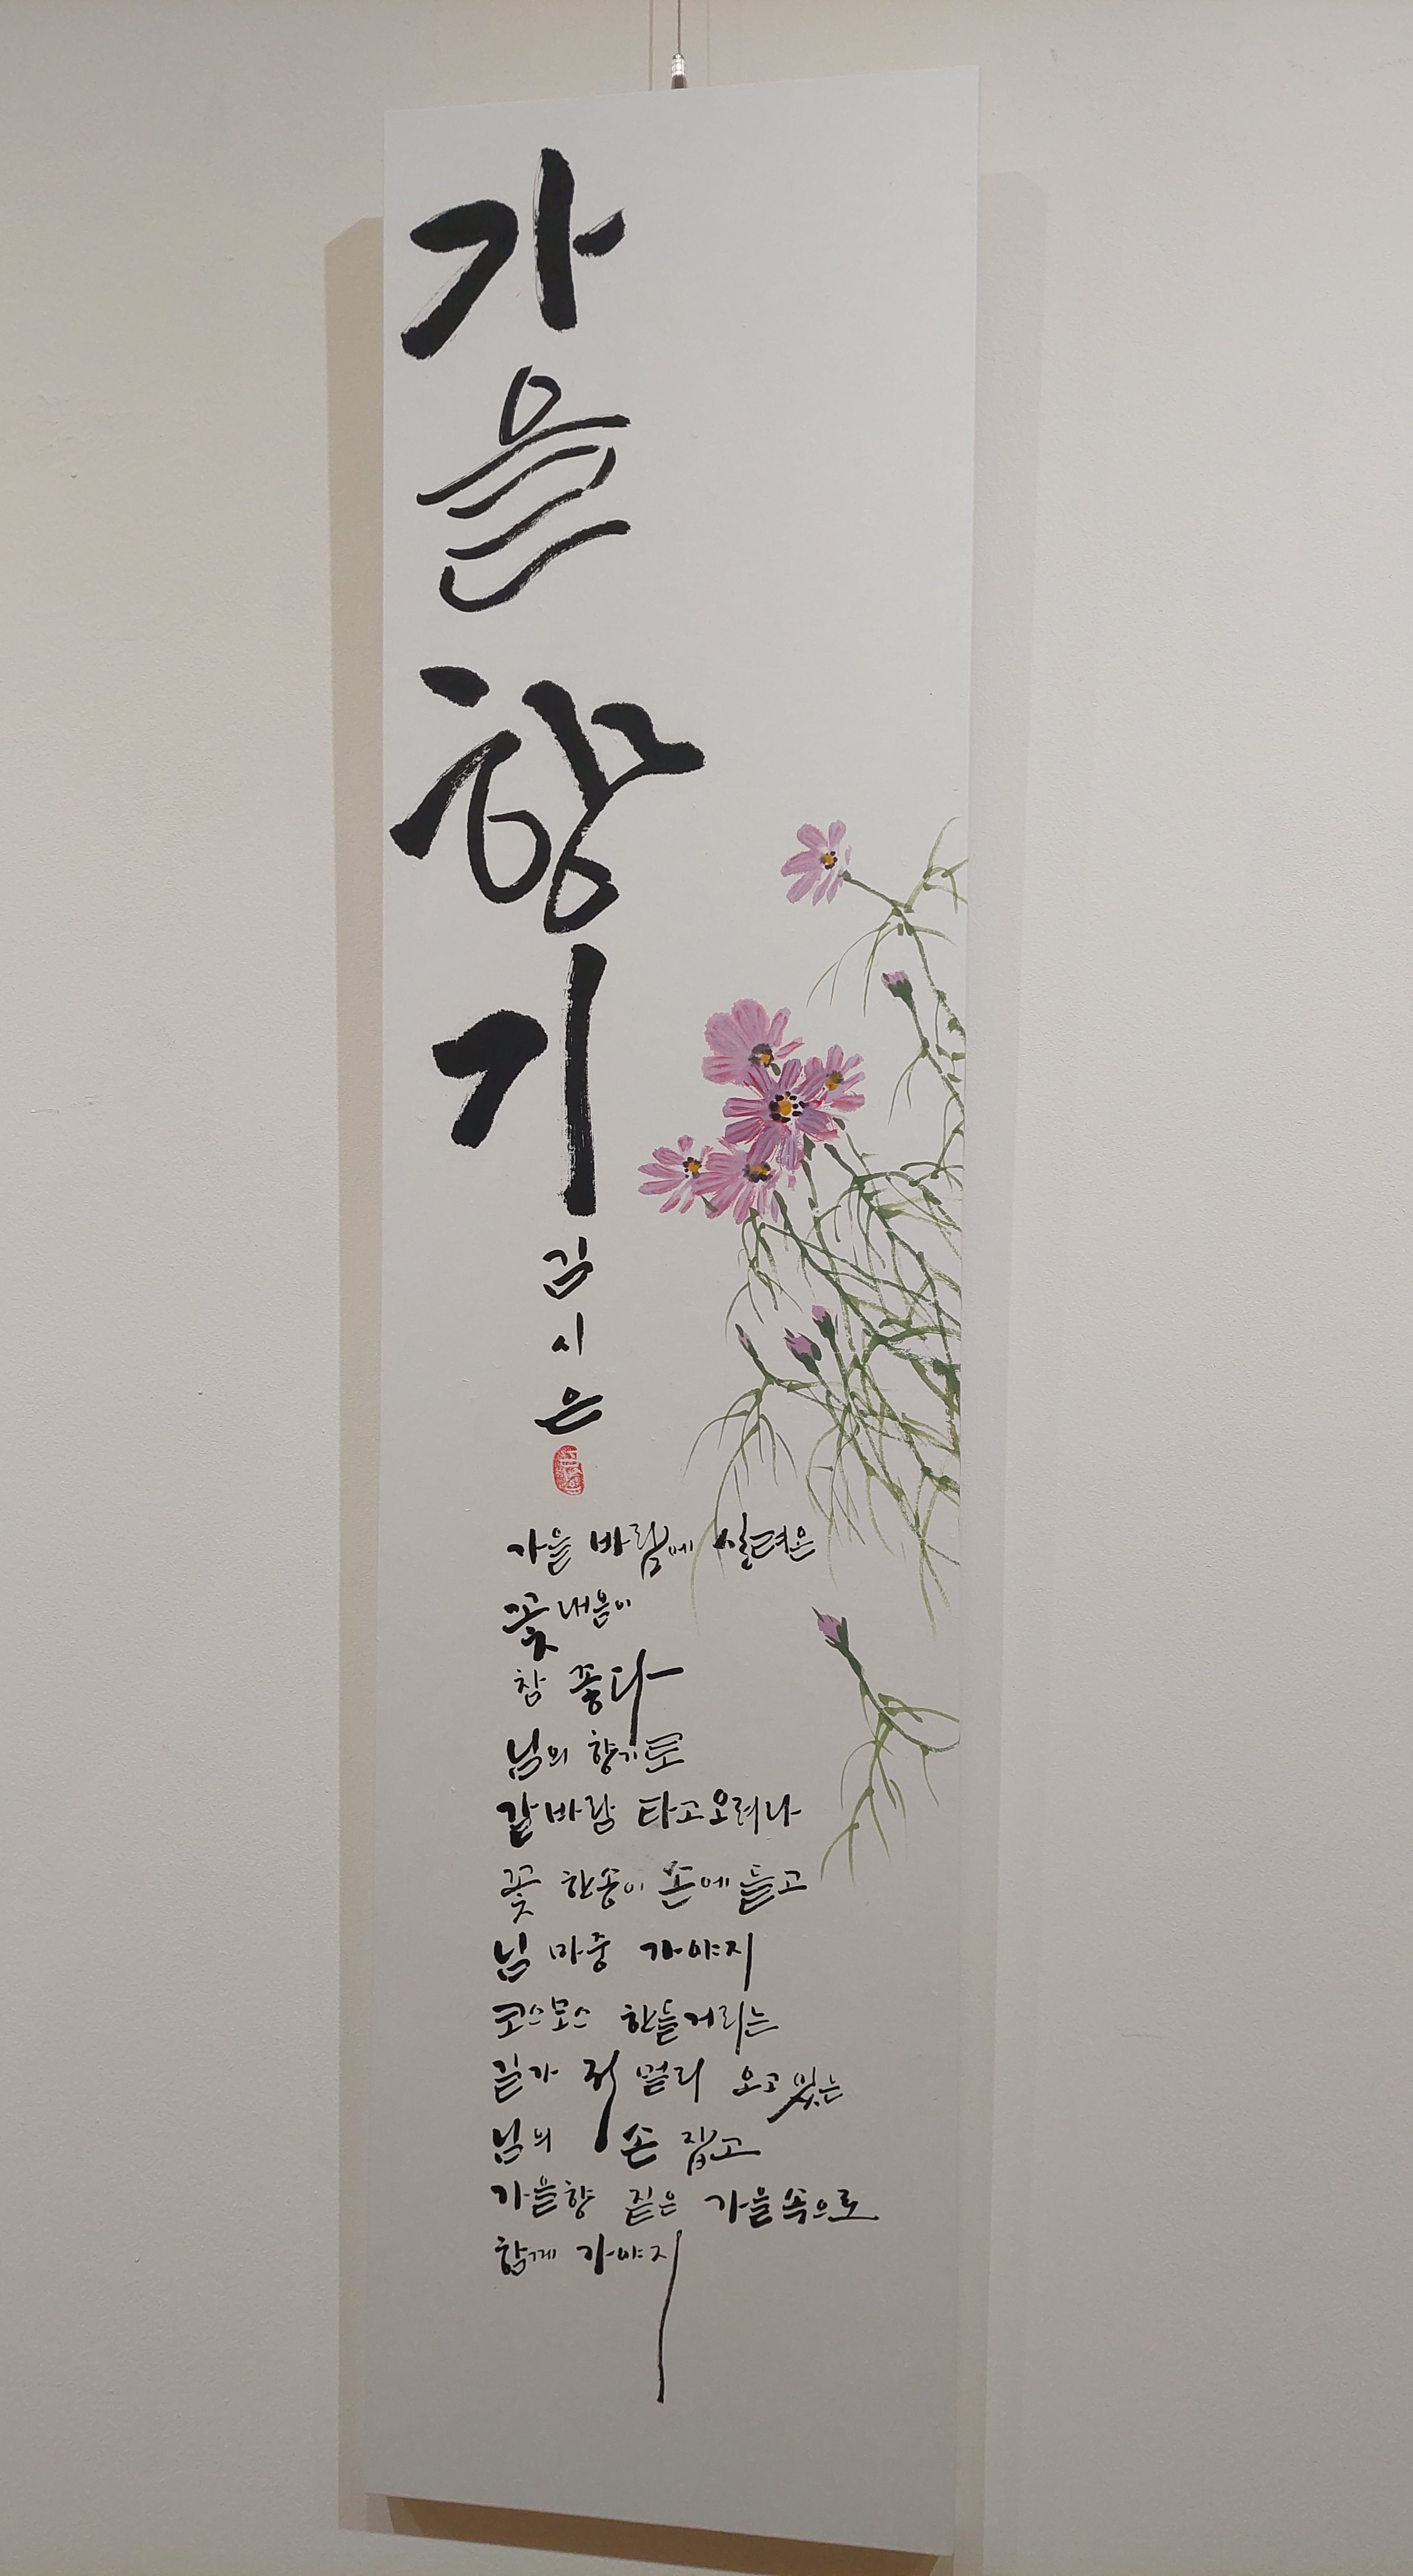 가을
향기
김시은
가을 바람에 실려온
꽃내음이
참 좋다
님의 향기로
갈바람 타고오려나
꽃 한송이 손에 들고
님 마중 가야지
코스모스 한들거리는
길가 저 멀리 오고있는
님의 손 잡고
가을향 짙은 가을속으로
함께 가야지